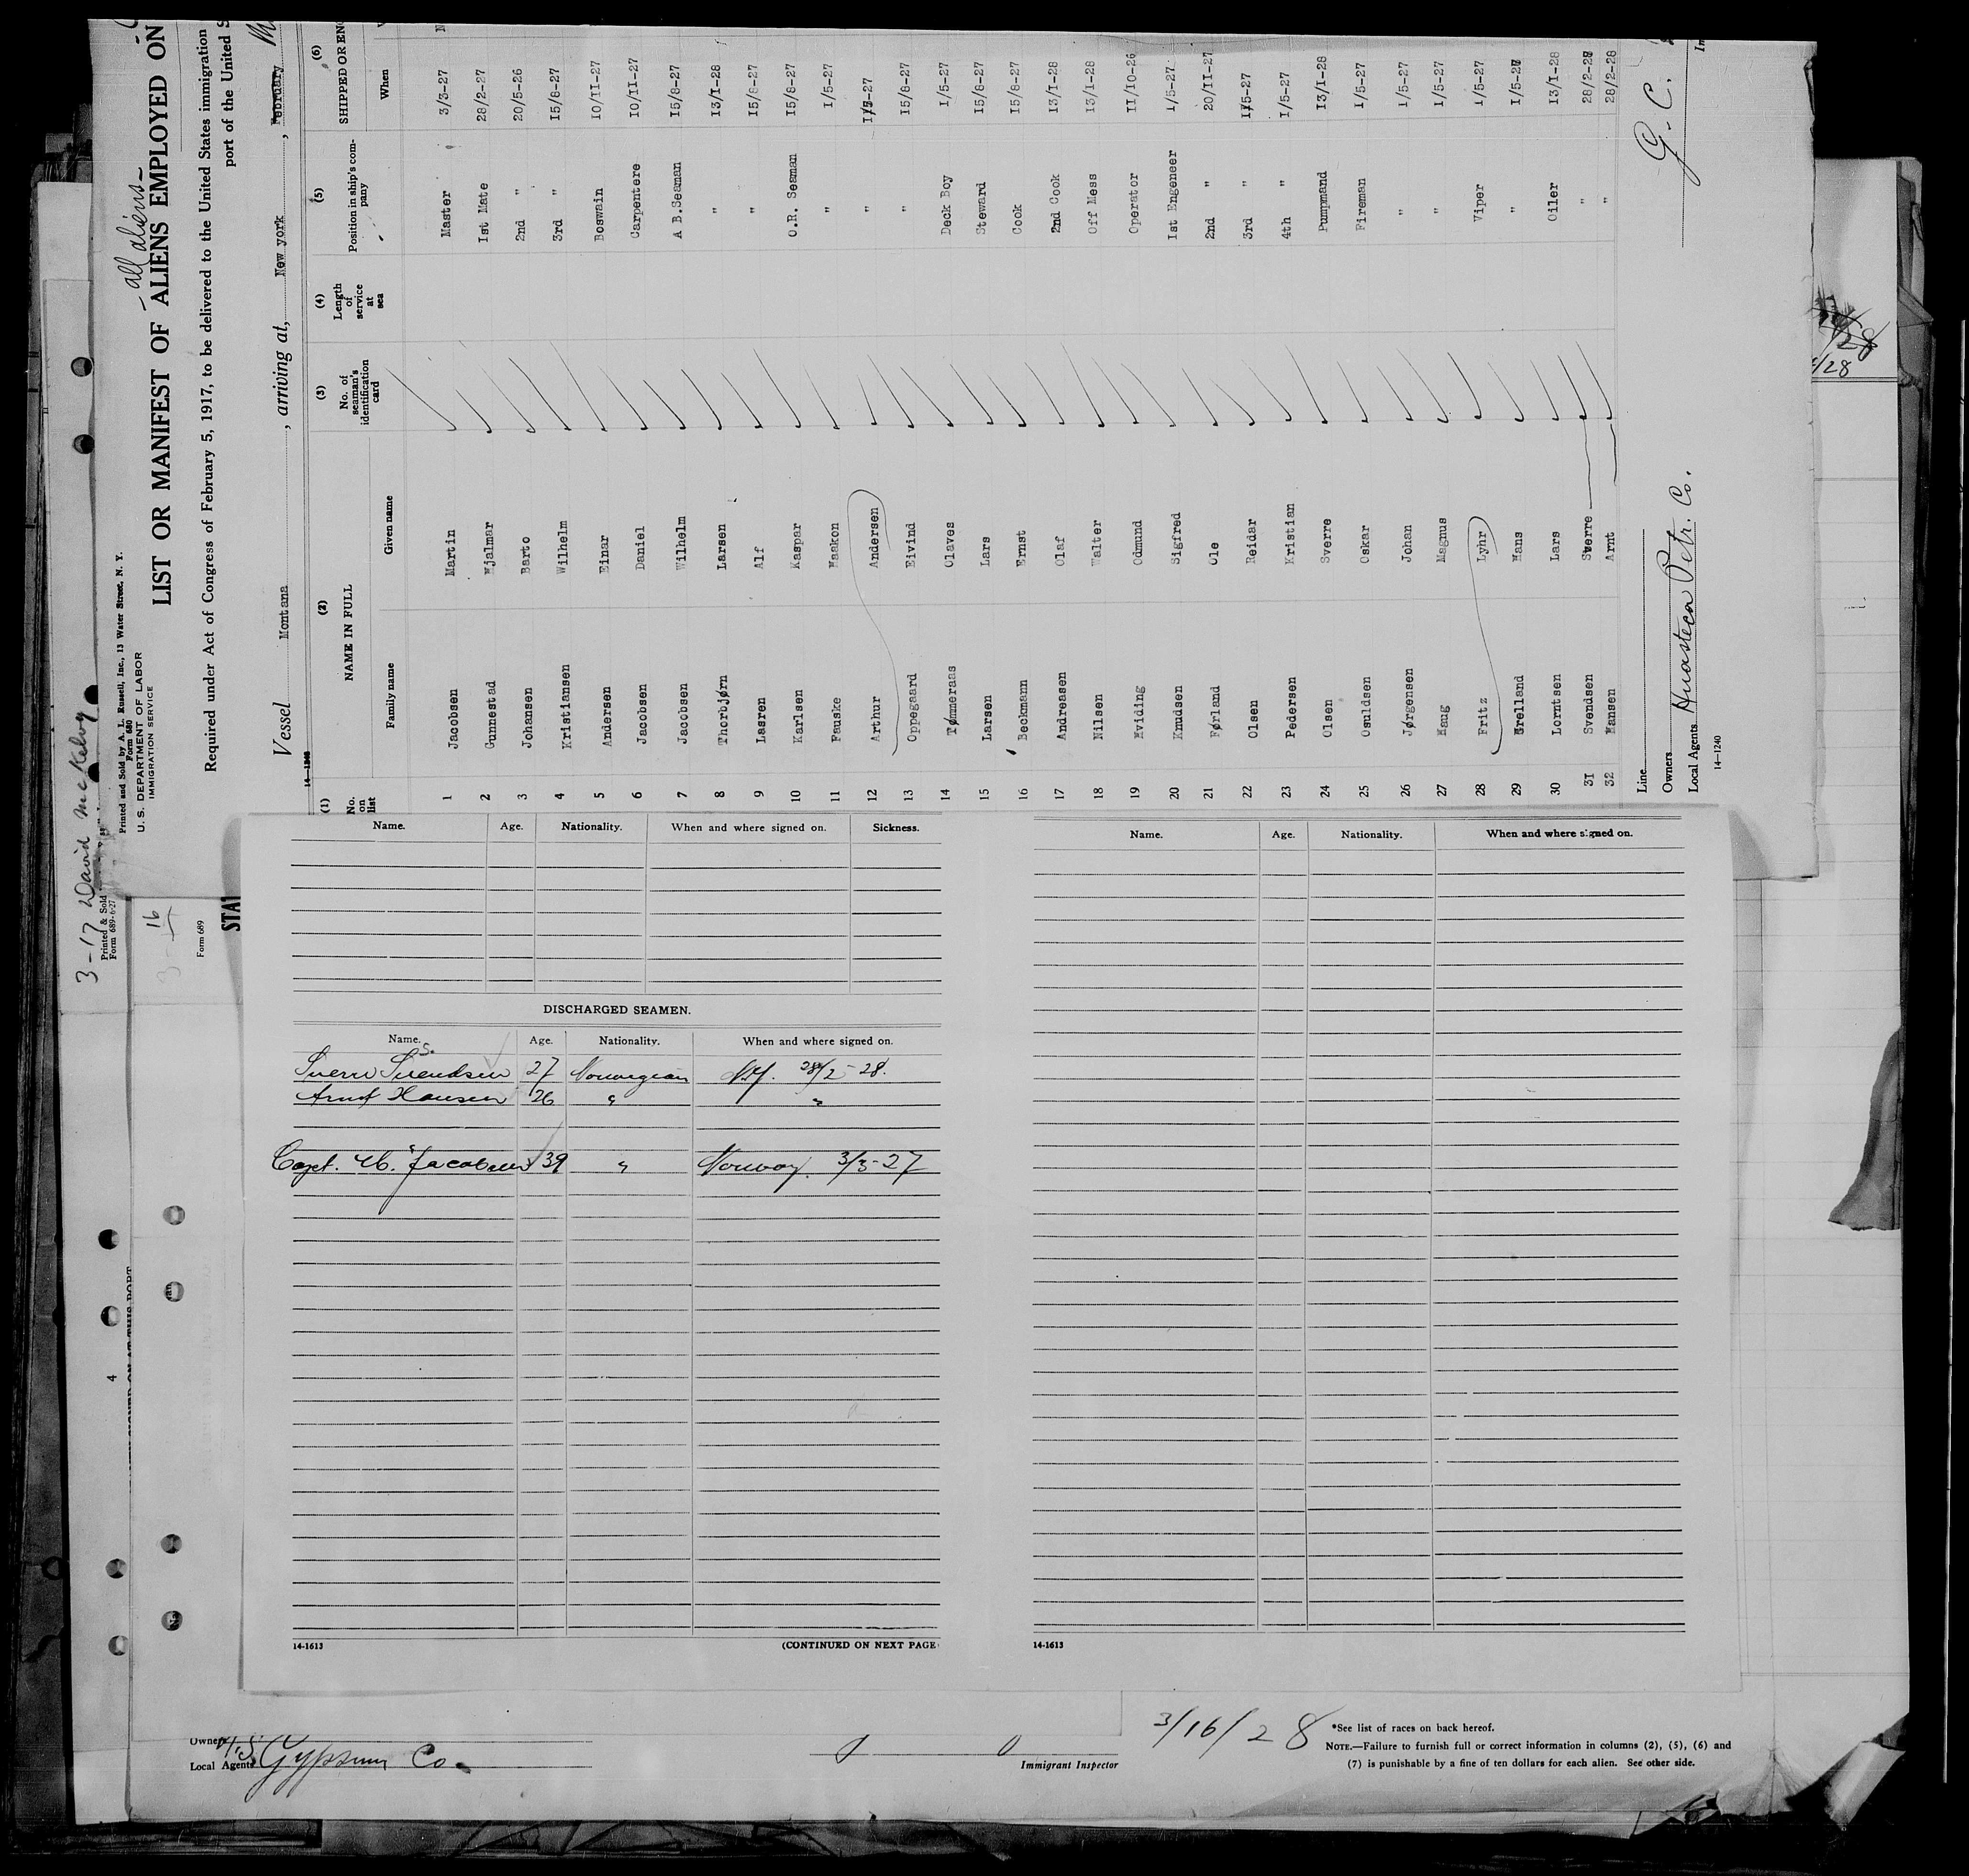 3-17 David McKelvy
Printed & Sold
Form 689-6-27
3-16
Form 689
Printed and Sold by A. L. Russell, Inc., 13 Water Street, N. Y.
Form 680
U. S. DEPARTMENT OF LABOR
IMMIGRATION SERVICE
-all aliens-
LIST OR MANIFEST OF ALIENS EMPLOYED ON
Required under Act of Congress of February 5, 1917, to be delivered to the United States immigration
port of the United S
Vessel Montana, arriving at, New york, February
(1) (2) (3) (4) (5) (6)
No. on list NAME IN FULL No. of seaman's identification card Length of service at sea Position in ship's company SHIPPED OR ENG
Family name Given name When
1 Jacobsen Martin Master 3/3-27
2 Gunnestad Hjalmar Ist Mate 28/2-27
3 Johansen Barto 2nd " 20/5-26
4 Kristiansen Wilhelm 3rd " I5/8-27
5 Andersen Einar Boswain 10/II-27
6 Jacobsen Daniel Carpentere IO/II-27
7 Jacobsen Wilhelm A B.Seaman I5/8-27
8 Thorbjørn Larsen " I3/I-28
9 Lasren Alf " I5/8-27
10 Karlsen Kaspar O.R. Seaman I5/8-27
11 Fauske Haakon " I/5-27
12 Arthur Andersen " I/5-27
13 Oppegaard Eivind " I5/8-27
14 Tømmeraas Olaves Deck Boy I/5-27
15 Larsen Lars Steward I5/8-27
16 Beckmann Ernst Cook I5/8-27
17 Andreasen Olaf 2nd Cook I3/I-28
18 Nilsen Walter Off Mess I3/I-28
19 Hviding Odmund Operator II/IO-26
20 Knudsen Sigfred Ist Engeneer I/5-27
21 Førland Ole 2nd " 20/II-27
22 Olsen Reidar 3rd " I/5-27
23 Pedersen Kristian 4th " I/5-27
24 Olsen Sverre Pumpmand I3/I-28
25 Osuldsen Oskar Fireman I/5-27
26 Jørgensen Johan " I/5-27
27 Haug Magnus " I/5-27
28 Fritz Lyhr Viper I/5-27
29 Grelland Hans " I/5-27
30 Lorntsen Lars Oiler I3/I-28
3I Svendsen Sverre " 28/2-28
32 Hansen Arnt " 28/2-28
Line
Owners
Local Agents Huasteca Petr. Co.
G. C.
14—1240
Name. Age. Nationality. When and where signed on. Sickness.
DISCHARGED SEAMEN.
Name. Age. Nationality. When and where signed on.
Sverre S. Svendsen 27 Norwegian N.Y. 28/2-28.
Arnt Hansen 26 " "
Capt. M. Jacobsen 39 " Norway. 3/3-27
14-1613 (CONTINUED ON NEXT PAGE
Name. Age. Nationality. When and where signed on.
14-1613
4
Owners
Local Agents U.S. Gypsum Co.
Immigrant Inspector
3/16/28
*See list of races on back hereof.
NOTE.—Failure to furnish full or correct information in columns (2), (5), (6) and
(7) is punishable by a fine of ten dollars for each alien. See other side.